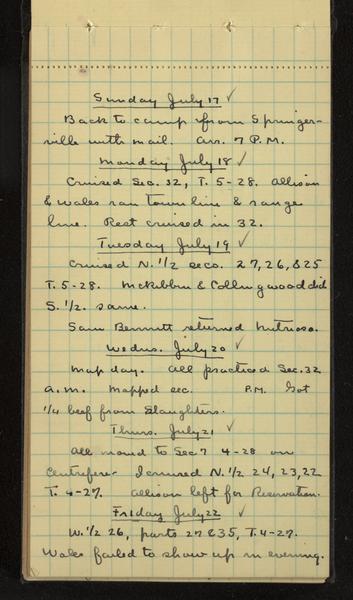 Sunday July 17 ✓
Back to camp from Springer-
ville with mail. Arr. 7 P.M.
Monday July 18 ✓
Cruised Sec. 32, T. 5-28. Allison
& Wales ran town line & range
line. Rest cruised in 32.
Tuesday July 19 ✓
Cruised N. 1/2 secs. 27, 26, & 25
T. 5-28. McKibbin & Collingwood did
S. 1/2 same.
Sam Bennett returned Nutrioso.
Wednes. July 20 ✓
Map day. All practiced Sec. 32
a.m. Mapped sec. P.M. Got
1/4 beef from Slaughters.
Thurs. July 21 ✓
All moved to Sec 7 4-28 on
I cruised N. 1/2 24, 23, 22
T. 4-27. Allison left for Reservation.
Friday July 22 ✓
W. 1/2 26, parts 27 & 35, T. 4-27.
Wales failed to show up in evening.